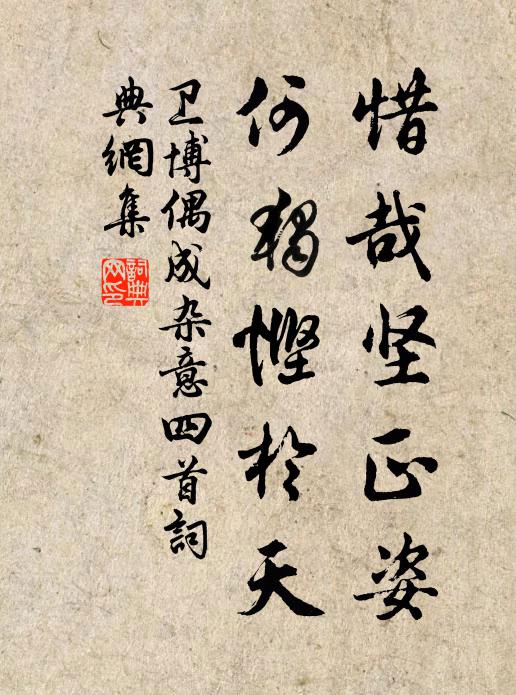 惜哉坚正姿
何独悭於天
卫博偶成杂意四首詞
典網集
詞典
网印